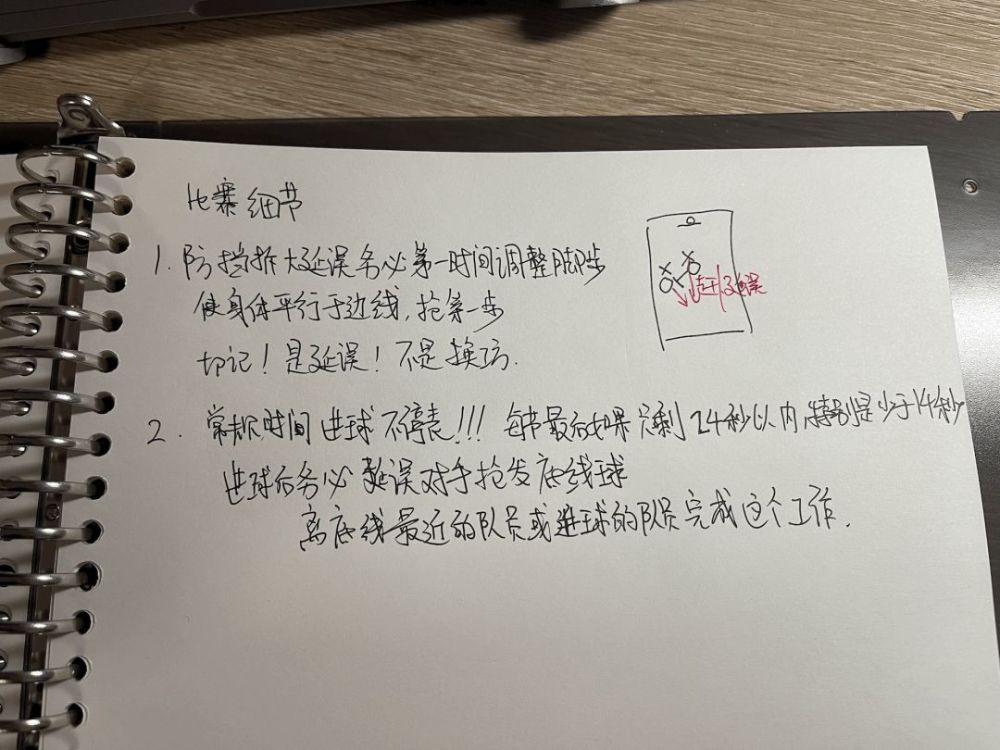 比赛细节
1. 防挡拆大延误务必第一时间调整脚步
使身体平行于边线,抢第一步
切记!是延误!不是换防.
赶/延误
2. 常规时间进球不停表!!! 每节最后如果只剩24秒以内,特别是少于14秒
进球后务必延误对手抢发底线球
离底线最近的队员或进球的队员完成这个工作.